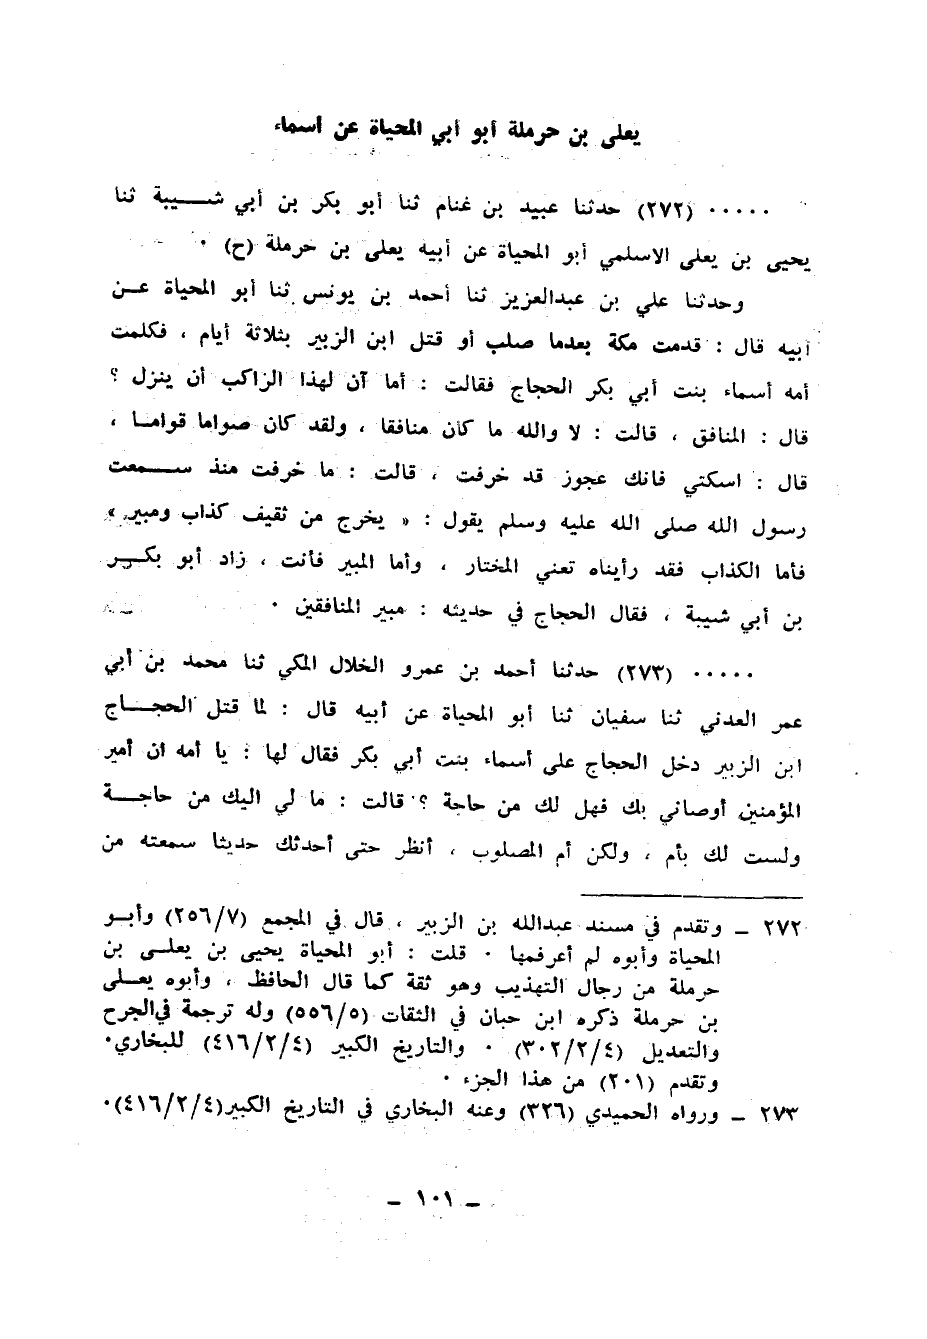 يعلى بن حرملة أبو أبي المحياة عن اسماء
٠٠٠٠٠ (٢٧٢) حدثنا عبيد بن غنام ثنا أبو بكر بن أبي شيبة ثنا
يحيى بن يعلى الاسلمي أبو المحياة عن أبيه يعلى بن حرملة (ح) ٠
وحدثنا علي بن عبدالعزيز ثنا أحمد بن يونس ثنا أبو المحياة عن
أبيه قال : قدمت مكة بعدما صلب أو قتل ابن الزبير بثلاثة أيام ، فكلمت
أمه أسماء بنت أبي بكر الحجاج فقالت : أما آن لهذا الراكب أن ينزل ؟
قال : المنافق ، قالت : لا والله ما كان منافقا ، ولقد كان صواما قواما ،
قال : اسكتي فانك عجوز قد خرفت ، قالت : ما خرفت منذ سمعت
رسول الله صلى الله عليه وسلم يقول : « يخرج من ثقيف كذاب ومبير »
فأما الكذاب فقد رأيناه تعني المختار ، وأما المبير فأنت ، زاد أبو بكر
بن أبي شيبة ، فقال الحجاج في حديثه : مبير المنافقين ٠
٠٠٠٠٠ (٢٧٣) حدثنا أحمد بن عمرو الخلال المكي ثنا محمد بن أبي
عمر العدني ثنا سفيان ثنا أبو المحياة عن أبيه قال : لما قتل الحجاج
ابن الزبير دخل الحجاج على أسماء بنت أبي بكر فقال لها : يا أمه ان أمير
المؤمنين أوصاني بك فهل لك من حاجة ؟ قالت : ما لي اليك من حاجة
ولست لك بأم ، ولكن أم المصلوب ، أنظر حتى أحدثك حديثا سمعته من
٢٧٢ ــ وتقدم في مسند عبدالله بن الزبير ، قال في المجمع (٢٥٦/٧) وأبو
المحياة وأبوه لم أعرفهما ٠ قلت : أبو المحياة يحيى بن يعلى بن
حرملة من رجال التهذيب وهو ثقة كما قال الحافظ ، وأبوه يعلى
بن حرملة ذكره ابن حبان في الثقات (٥٥٦/٥) وله ترجمة في الجرح
والتعديل (٣٠٢/٢/٤) ٠ والتاريخ الكبير (٤١٦/٢/٤) للبخاري٠
وتقدم (٢٠١) من هذا الجزء ٠
٢٧٣ ــ ورواه الحميدي (٣٢٦) وعنه البخاري في التاريخ الكبير(٤١٦/٢/٤)٠
ــ ١٠١ ــ